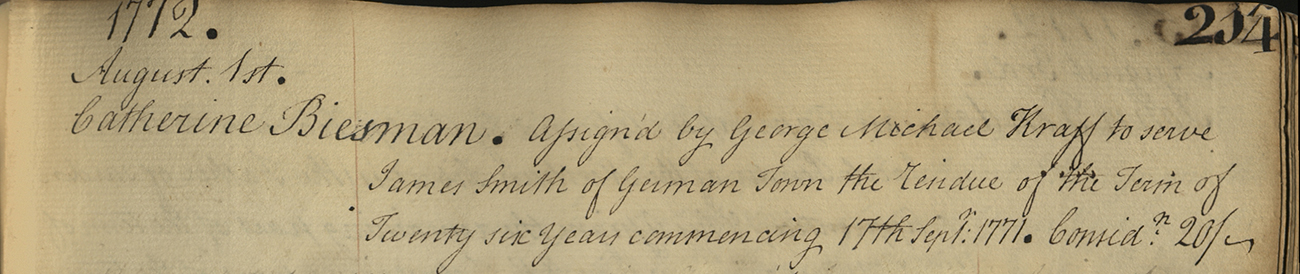 1772.
214
August. 1st.
Catherine Biesman. Assign'd by George Michael Kraff to serve
James Smith of German Town the Residue of the Term of
Twenty six Years commencing 17th Sepr: 1771. Considn. 20/-